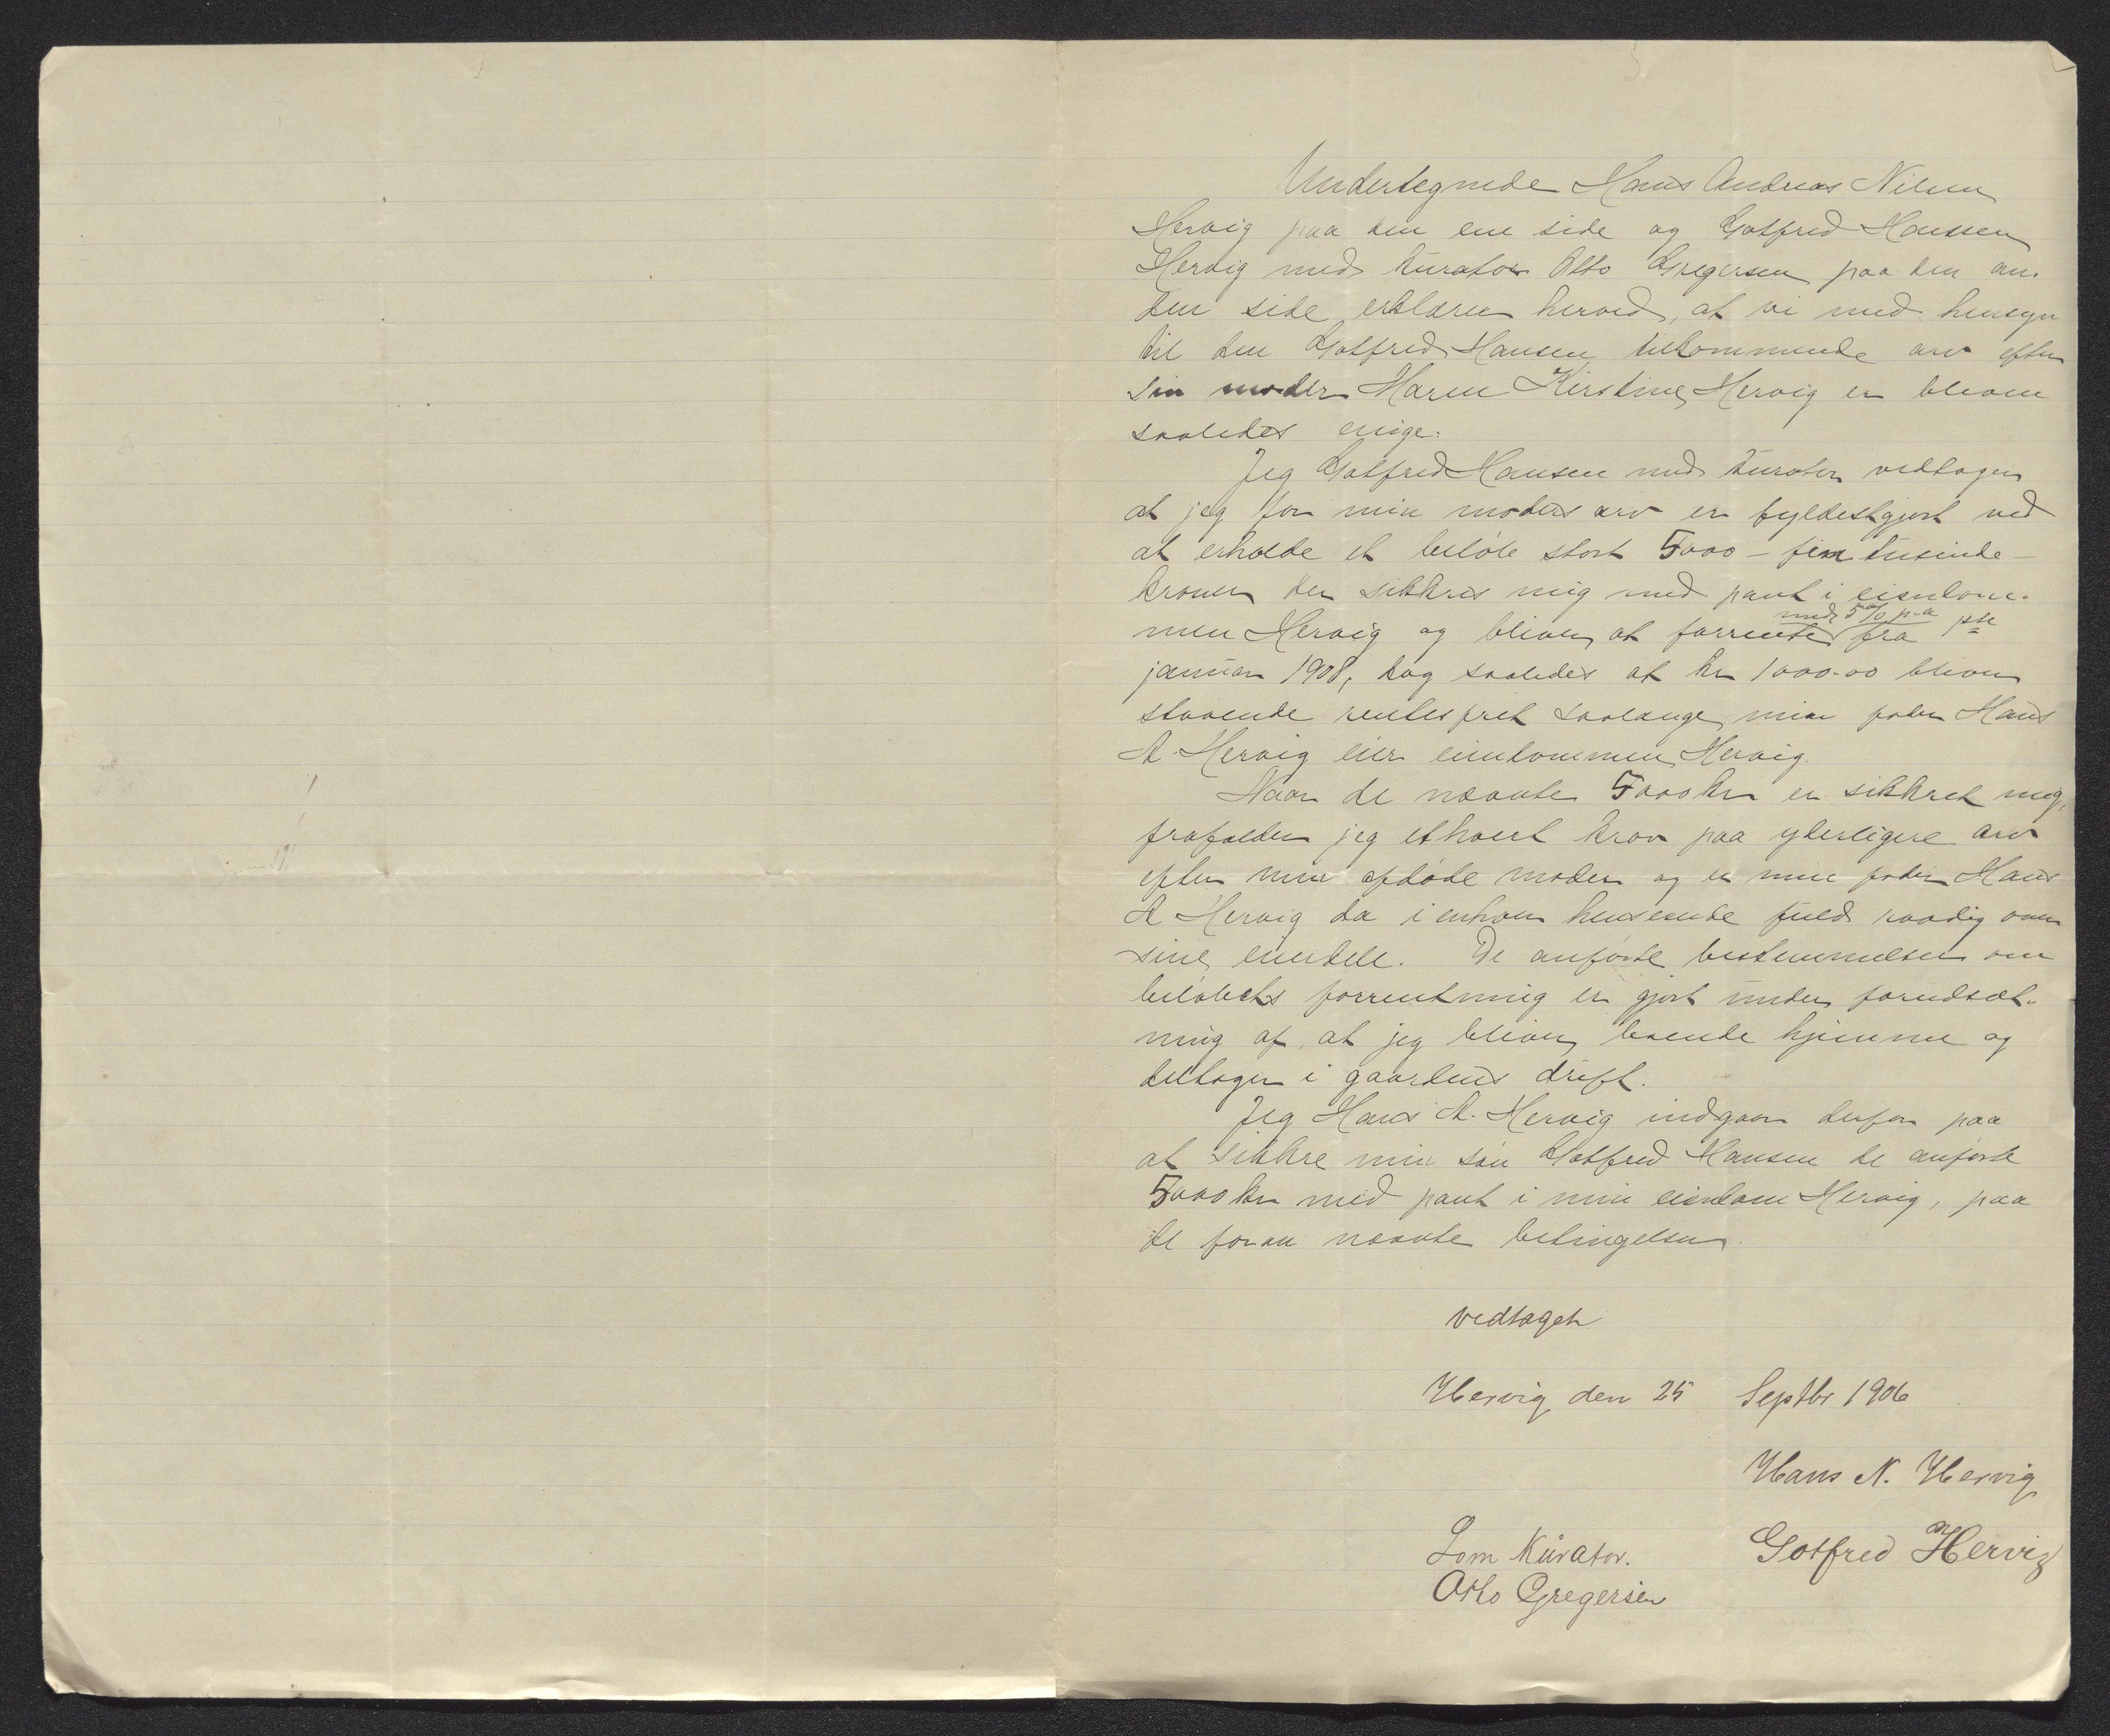 Undertegnede Hans Andreas Nilsen
Hervig paa den ene side og Gotfred Hansen
Hervig med kurator Otto Gregersen paa den an-
den side erklærer herved, at vi med hensyn
til den Gotfred Hansen tilkommende arv efter
sin moder Maren Kirstine Hervig er bleven
saaledes enige:
Jeg Gotfred Hansen med kurator vedtager
at jeg for min moders arv er fyldestgjort ved
at erholde et beløb stort 5000 – fem tusinde –
kroner der sikkres mig med pant i eiendom-
men Hervig og bliver at forrente med 5% p.a fra 1ste
januar 1908, dog saaledes at kr 1000.00 bliver
staaende rentefrit saalænge min fader Hans
A Hervig eier eiendommen Hervig.
Naar de nævnte 5000 kr er sikkret mig,
frafalder jeg ethvert krav paa yderligere arv
efter min afdøde moder og er min fader Hans
A Hervig da i enhver henseende fuld raadig over
sine eiendele. De anførte bestemmelser om
beløbets forrentning er gjort under forudsæt-
ning af at jeg bliver boende hjemme og
deltager i gaardens drift.
Jeg Hans A. Hervig indgaar derfor paa
at sikkre min søn Gotfred Hansen de anførte
5000 kr med pant i min eiendom Hervig, paa
de foran nævnte betingelser.
vedtaget
Hervig den 25 Septbr 1906
Hans N. Hervig
Som Kurator. Gotfred Hervig
Otto Gregersen